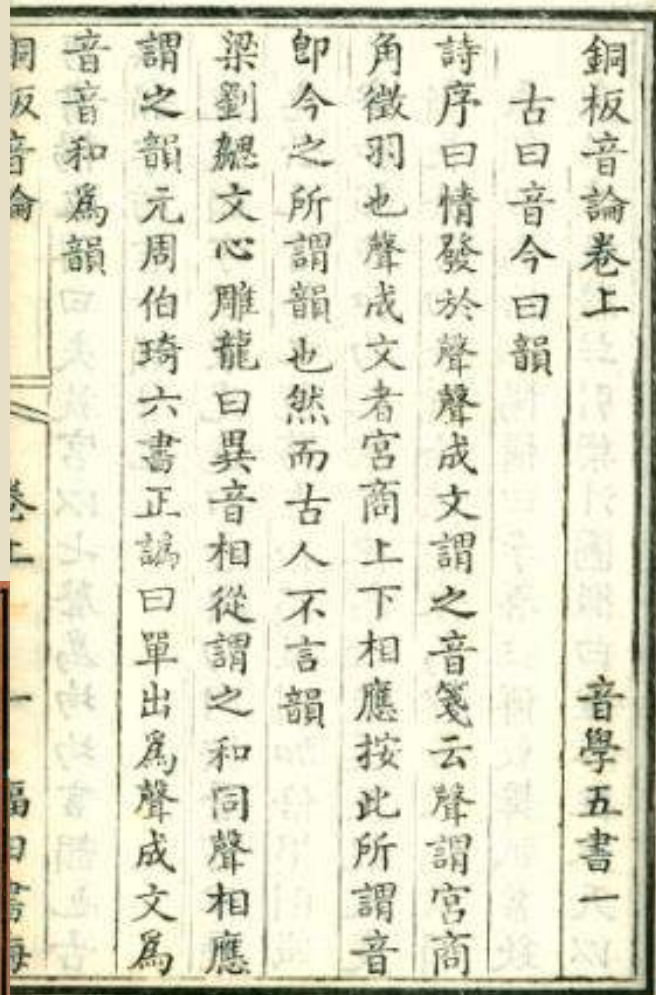 銅板音論卷上 音學五書一
古曰音今曰韻
詩序曰情發於聲聲成文謂之音箋云聲謂宮商
角徵羽也聲成文者宮商上下相應按此所謂音
卽今之所謂韻也然而古人不言韻
梁劉勰文心雕龍曰異音相從謂之和同聲相應
謂之韻元周伯琦六書正譌曰單出爲聲成文爲
音音和爲韻
銅板音論 卷上 一 福田書海